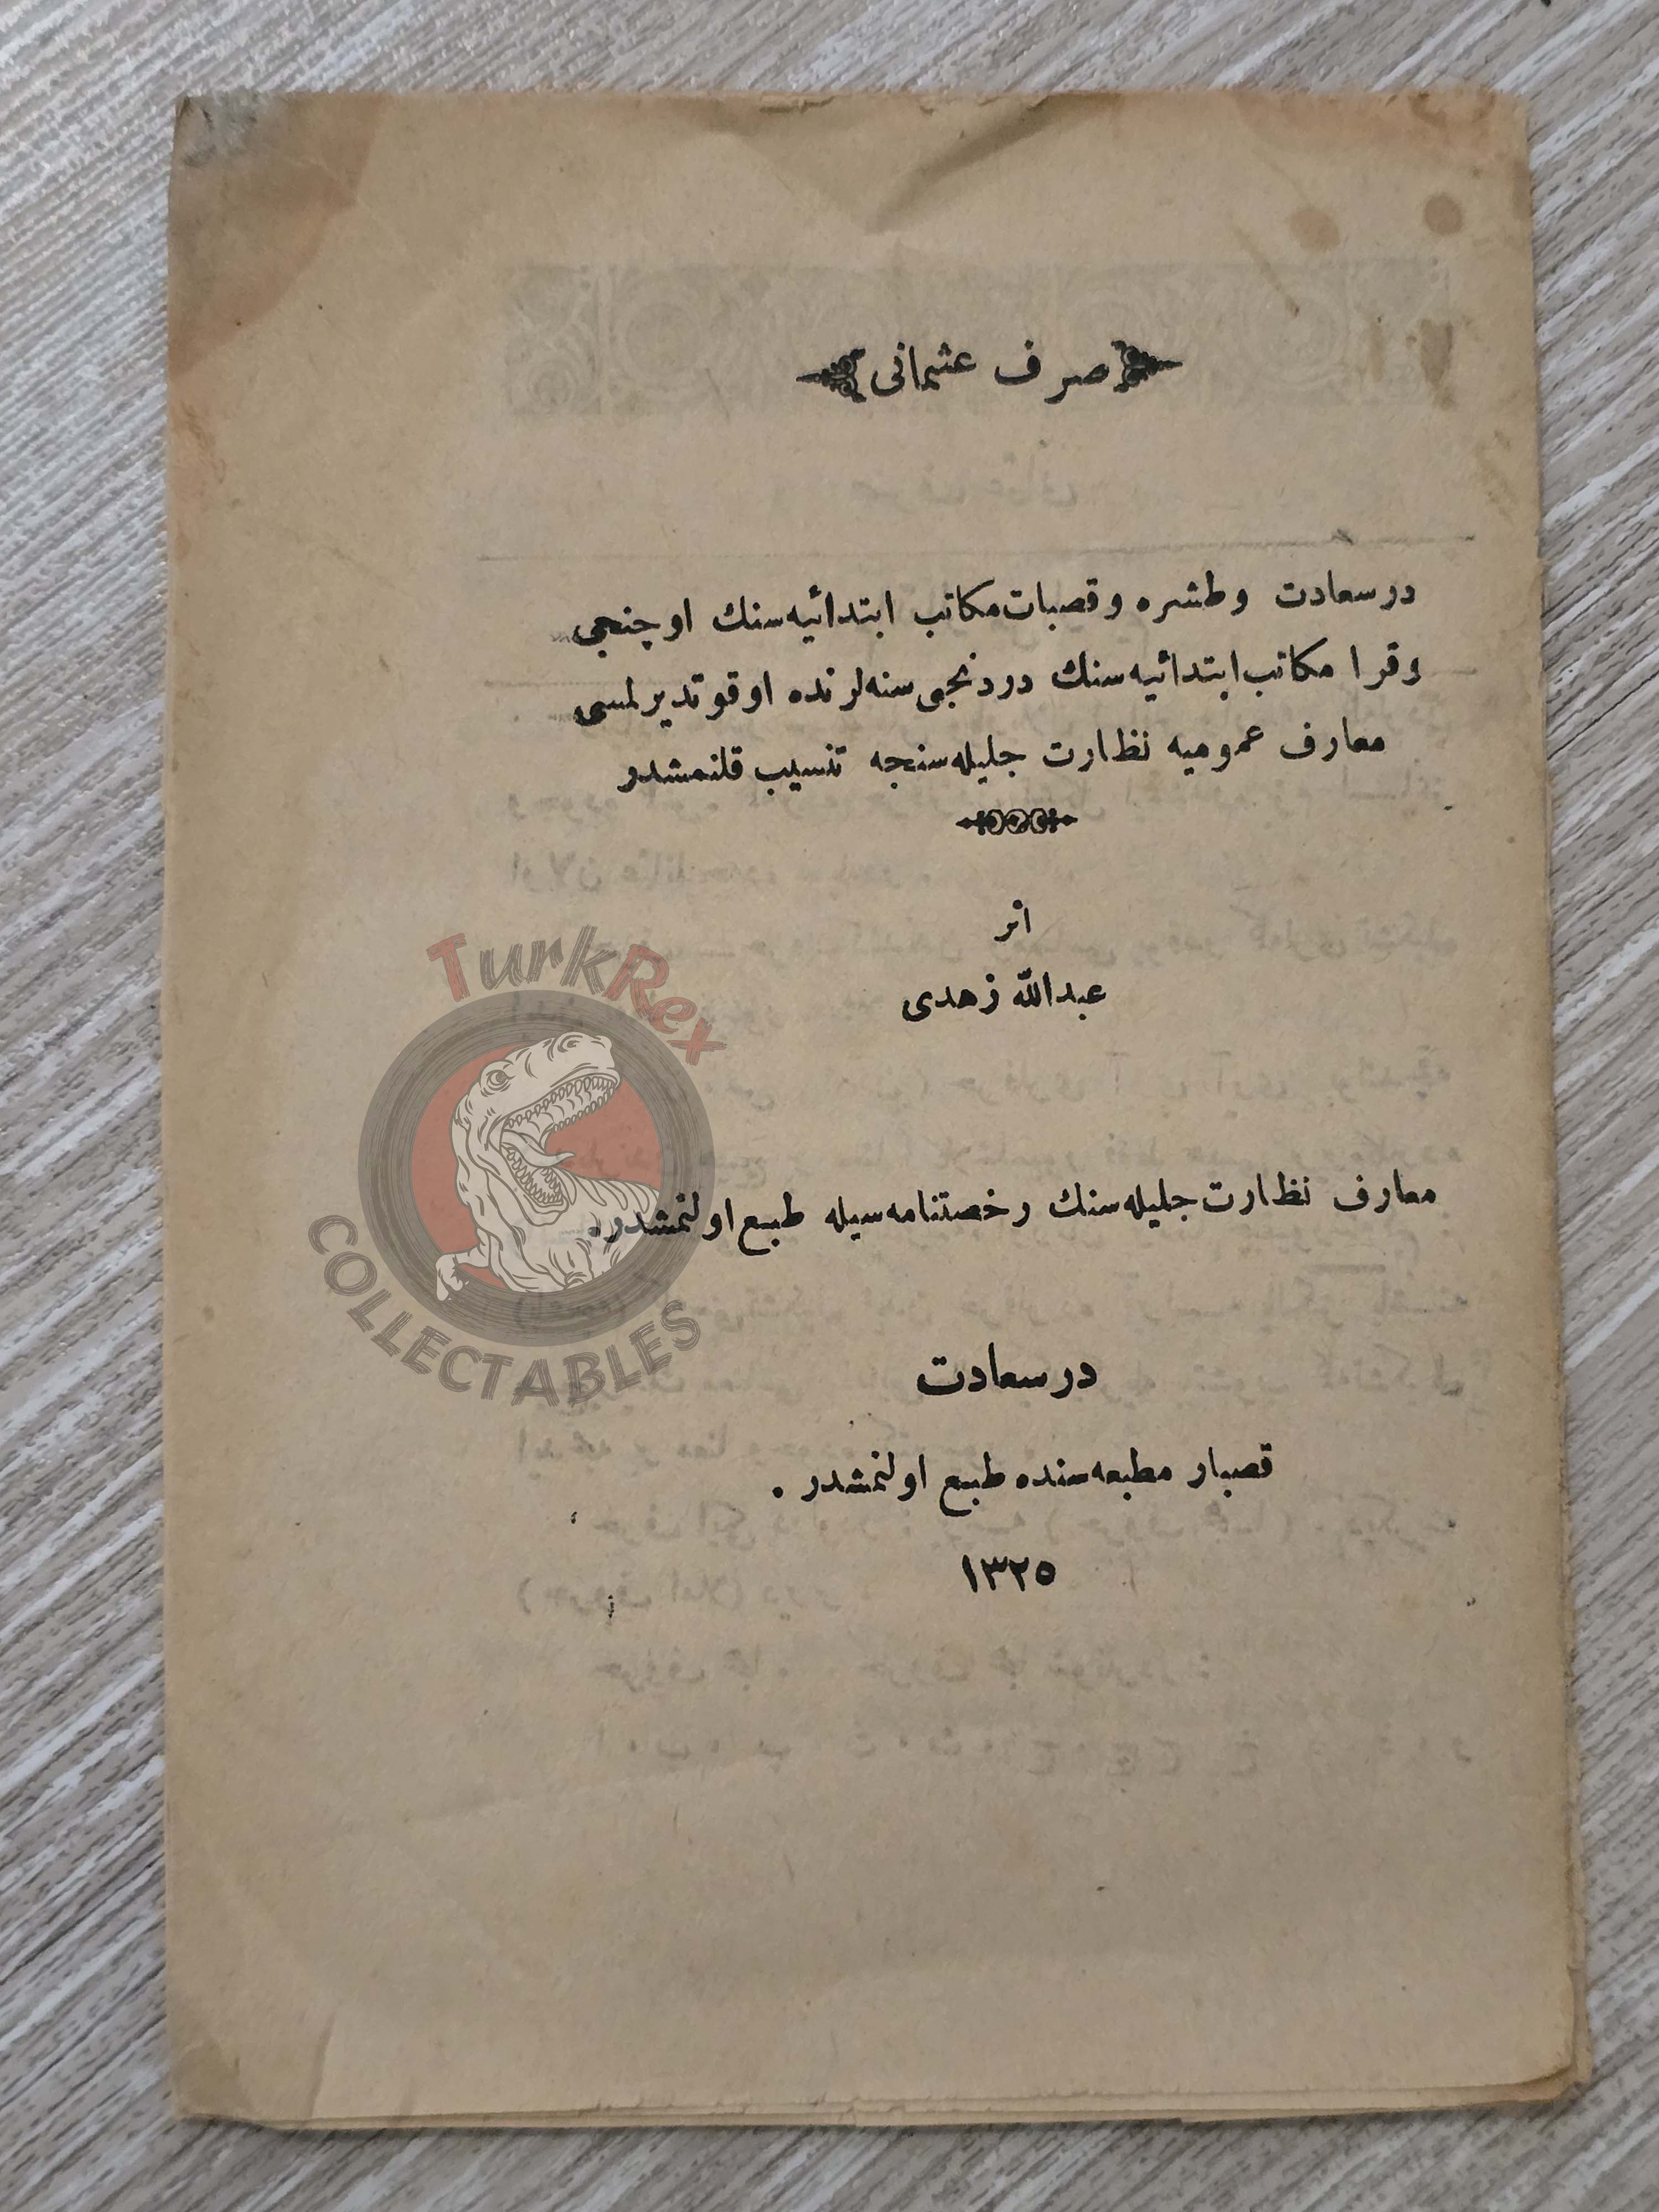 صرف عثمانی
درسعادت وطشره وقصبات مكاتب ابتدائیه‌سنك اوچنجی
وقرا مكاتب ابتدائیه‌سنك دردنجی سنه‌لرنده اوقوتدیرلمسی
معارف عمومیه نظارت جلیله‌سنجه تنسیب قلنمشدر
اثر
عبدالله زهدی
معارف نظارت جلیله‌سنك رخصتنامه‌سیله طبع اولنمشدر.
درسعادت
قصبار مطبعه‌سنده طبع اولنمشدر .
١٣٢٥
TurkRex
COLLECTABLES